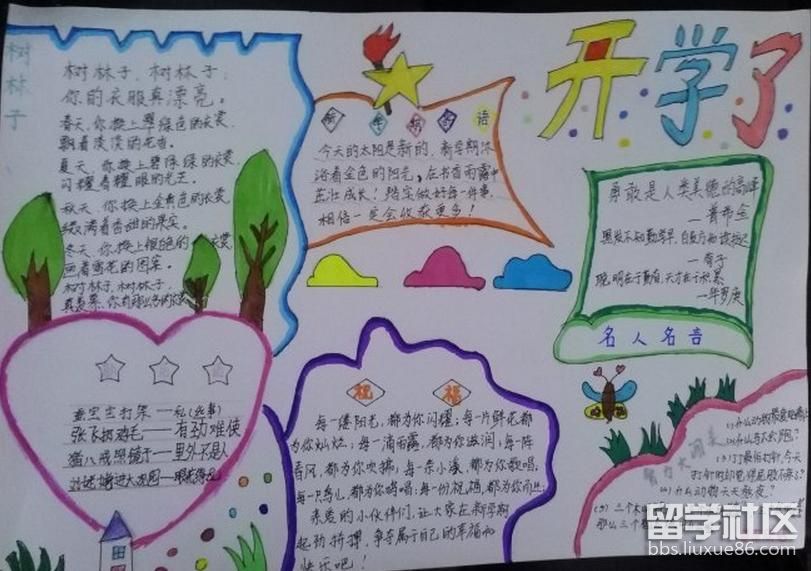 开学了
树林子
树林子，树林子，
你的衣服真漂亮。
春天，你换上翠绿色的衣裳，
飘着淡淡的花香。
夏天，你换上碧绿绿的衣裳，
闪耀着耀眼的光芒。
秋天，你换上金黄色的衣裳，
缀满着香甜的果实。
冬天，你换上银色的衣裳，
画着雪花的图案。
树林子，树林子，
新学期寄语
今天的太阳是新的，新学期沐
浴着金色的阳光，在书香雨露中
茁壮成长！踏实做好每一件事，
相信一定会收获更多！
勇敢是人类美德的高峰
—普希金
黑发不知勤学早，白首方悔读书迟
聪明在于勤奋，天才在于积累
—华罗庚
名人名言
蚕宝宝打架——私（丝事）
张飞扔鸡毛——有劲难使
猪八戒照镜子——里外不是人
祝福
每一缕阳光，都为你闪耀；每一片鲜花都
为你灿烂；每一滴雨露，都为你滋润；每一阵
春风，都为你吹拂；每一条小溪，都为你歌唱；
每一只鸟儿，都为你鸣唱；每一份祝福，都为你而
亲爱的小伙伴们，让大家在新学期
起劲拼搏，争夺属于自己的幸福和
快乐吧！
智力大闯关
(3)丁丁最怕打针，今天
(4)什么动物天天熬夜？
(5)三个
那么三个
留学社区
bbs.liuxue86.com